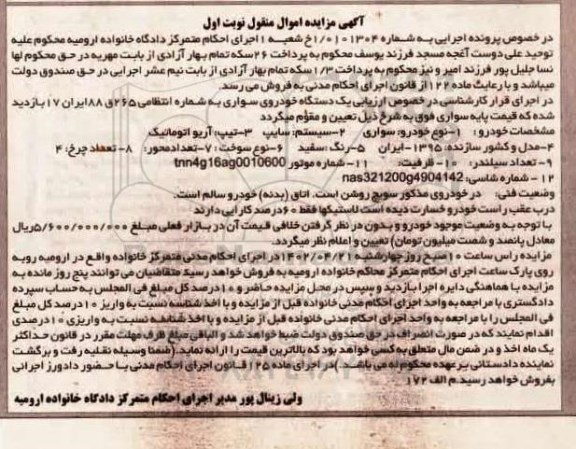 آگهی مزایده اموال منقول نوبت اول
در خصوص پرونده اجرایی به شماره ۱/۰۱۰۱۳۰۴خ شعبه ۱اجرای احکام متمرکز دادگاه خانواده ارومیه محکوم علیه
توحید علی دوست آغجه مسجد فرزند یوسف محکوم به پرداخت ۲۶سکه تمام بهار آزادی از بابت مهریه در حق محکوم لها
نسا جلیل پور فرزند امیر و نیز محکوم به پرداخت ۱/۳سکه تمام بهار آزادی از بابت نیم عشر اجرایی در حق صندوق دولت
میباشد و با رعایت ماده ۱۲۲از قانون اجرای احکام مدنی به فروش می رسد.
در اجرای قرار کارشناسی در خصوص ارزیابی یک دستگاه خودروی سواری به شماره انتظامی۲۶۵ق۸۸ایران۱۷بازدید
شده که قیمت پایه سواری فوق به شرح ذیل تعیین و مقوم میگردد
مشخصات خودرو : ۱-نوع خودرو: سواری ۲-سیستم: سایپا ۳-تیپ: آریو اتوماتیک
۴-مدل و کشور سازنده: ۱۳۹۵-ایران ۵-رنگ: سفید ۶-نوع سوخت: ۷-تعدادمحور: ۸-تعداد چرخ: ۴
۹-تعداد سیلندر: ۱۰-ظرفیت: ۱۱-شماره موتور tnn4g16ag0010600
۱۲-شماره شاسی: nas321200g4904142
وضعیت فنی: در خودروی مذکور سویچ روشن است. اتاق (بدنه) خودرو سالم است.
درب عقب راست خودرو خسارت دیده است لاستیکها فقط ۶۰درصد کارایی دارند
با توجه به وضعیت موجود خودرو و بدون در نظر گرفتن خلافی قیمت آن در بازار فعلی مبلغ ۵/۶۰۰/۰۰۰/۰۰۰ریال
معادل پانصد و شصت میلیون تومان) تعیین و اعلام نظر میگردد.
مزایده راس ساعت ۱۰صبح روز چهارشنبه ۱۴۰۲/۰۴/۲۱در اجرای احکام مدنی متمرکز خانواده واقع در ارومیه روبه
روی پارک ساعت اجرای احکام متمرکز محاکم خانواده ارومیه به فروش خواهد رسید متقاضیان می توانند پنج روز مانده به
مزایده با هماهنگی دایره اجرا بازدید و سپس در محل مزایده حاضر و ۱۰درصد کل مبلغ فی المجلس به حساب سپرده
دادگستری با مراجعه به واحد اجرای احکام مدنی خانواده قبل از مزایده و با اخذ شناسه نسبت به واریز ۱۰درصد کل مبلغ
فی المجلس را با مراجعه به واحد اجرای احکام مدنی خانواده قبل از مزایده و با اخذ شناسه نسبت به واریزی ۱۰درصدی
اقدام نمایند که در صورت انصراف در حق صندوق دولت ضبط خواهد شد و الباقی مبلغ ظرف مهلت مقرر در قانون حداکثر
یک ماه اخذ و در ضمن مال متعلق به کسی خواهد بود که بالاترین قیمت را ارائه نماید.(ضمنا وسیله نقلیه رفت و برگشت
نماینده دادستانی برعهده محکوم له می باشد.)در اجرای ماده ۱۲۵قانون اجرای احکام مدنی با حضور دادورز اجرائی
بفروش خواهد رسید.م الف ۱۷۲
ولی زینال پور مدیر اجرای احکام متمرکز دادگاه خانواده ارومیه